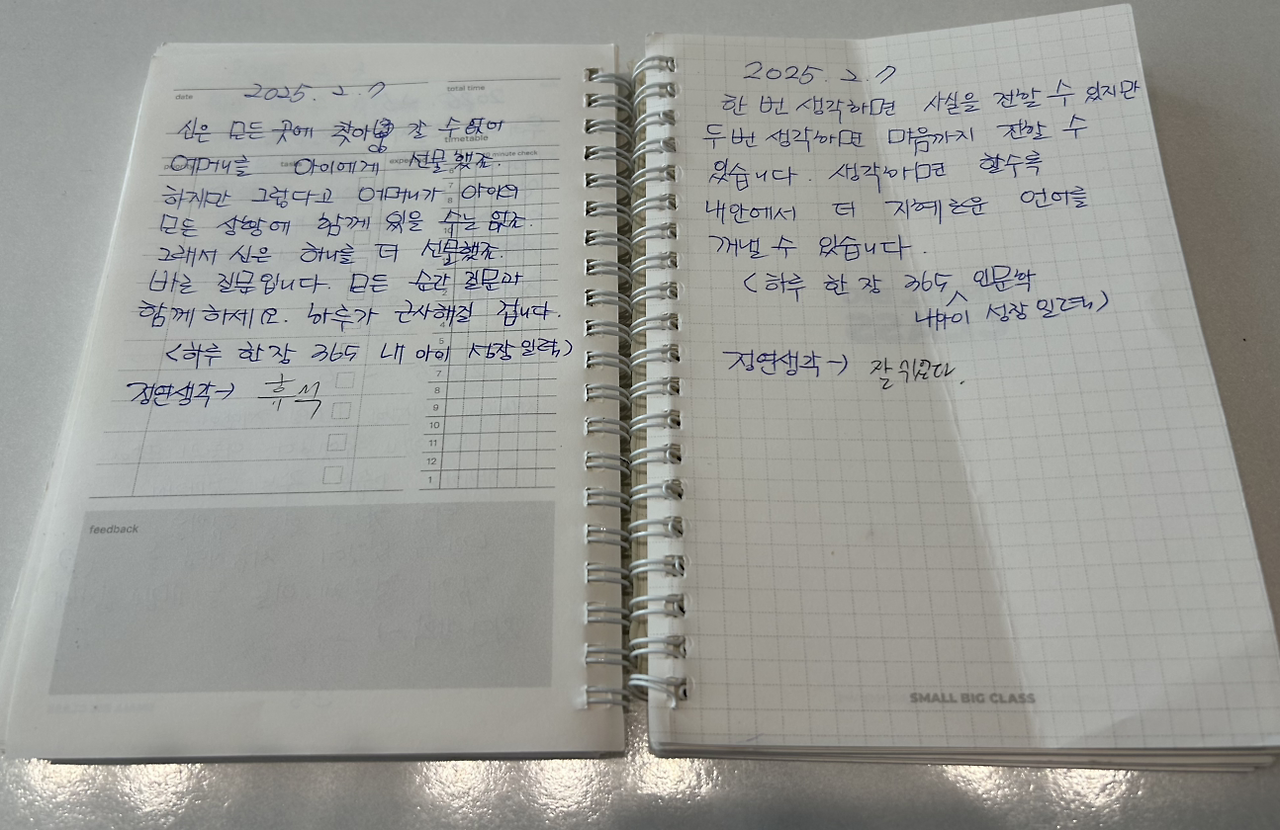 date 2025. 2. 7 total time
신은 모든 곳에 찾아 갈 수 없어
timetable
어머니를 아이에게 선물했죠.
minute check
하지만 그렇다고 어머니가 아이의
모든 상황에 함께 있을 수는 없죠.
그래서 신은 하나를 더 선물했죠.
바로 질문입니다. 모든 순간 질문과
함께 하세요. 하루가 근사해질 겁니다.
<하루 한 장 365 내 아이 성장 일력>
정연생각→ 휴식
5
7
8
9
10
11
12
1
feedback
2025. 2. 7
한 번 생각하면 사실을 전할 수 있지만
두번 생각하면 마음까지 전할 수
있습니다. 생각하면 할수록
내안에서 더 지혜로운 언어를
꺼낼 수 있습니다.
<하루 한 장 365 인문학
내아이 성장 일력>
정연생각→ 잘 쉬었다.
SMALL BIG CLASS